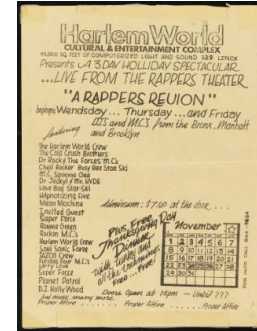 Harlem World
CULTURAL & ENTERTAINMENT COMPLEX
45,000 SQ. FEET OF COMPUTERIZED LIGHT AND SOUND 129 LENOX
Presents A 3 DAY HOLLIDAY SPECTACULAR
...LIVE FROM THE RAPPERS THEATER
"A RAPPERS REUION"
Wendsday... Thursday... and Friday
featuring DJ'S and M.C.'S from the Bronx, Manhatt
and Brooklyn
The Harlem World Crew
The Cold Crush Brothers
Dr Rocky The Forces M.C's
Chell Rocker Busy Bee Star Ski
M.C. Spoonie Gee
Dr. Jeckyl & Mr. HYDE
Love Bug Star-Ski
Mean Machine
Admission: $7.00 at the door...
Invited Guest
Super Force
Ronnie Green
Rockin M.C.'S
Harlem World Crew
Soul Sonic Force
Larry Love
Super Force
Planet Patrol
D.J. Holly Wood
Plus Free
Thanksgiving Day
Dinner
with Turkey and
all the trimmings
Free... Free
November
1 2 3 4 5 6
7 8 9 10 11 12 13
14 15 16 17 18 19 20
21 22 23 24 25 26 27
28 29 30
Doors open at — Until ???
Proper Attire... Proper Attire... Proper Attire